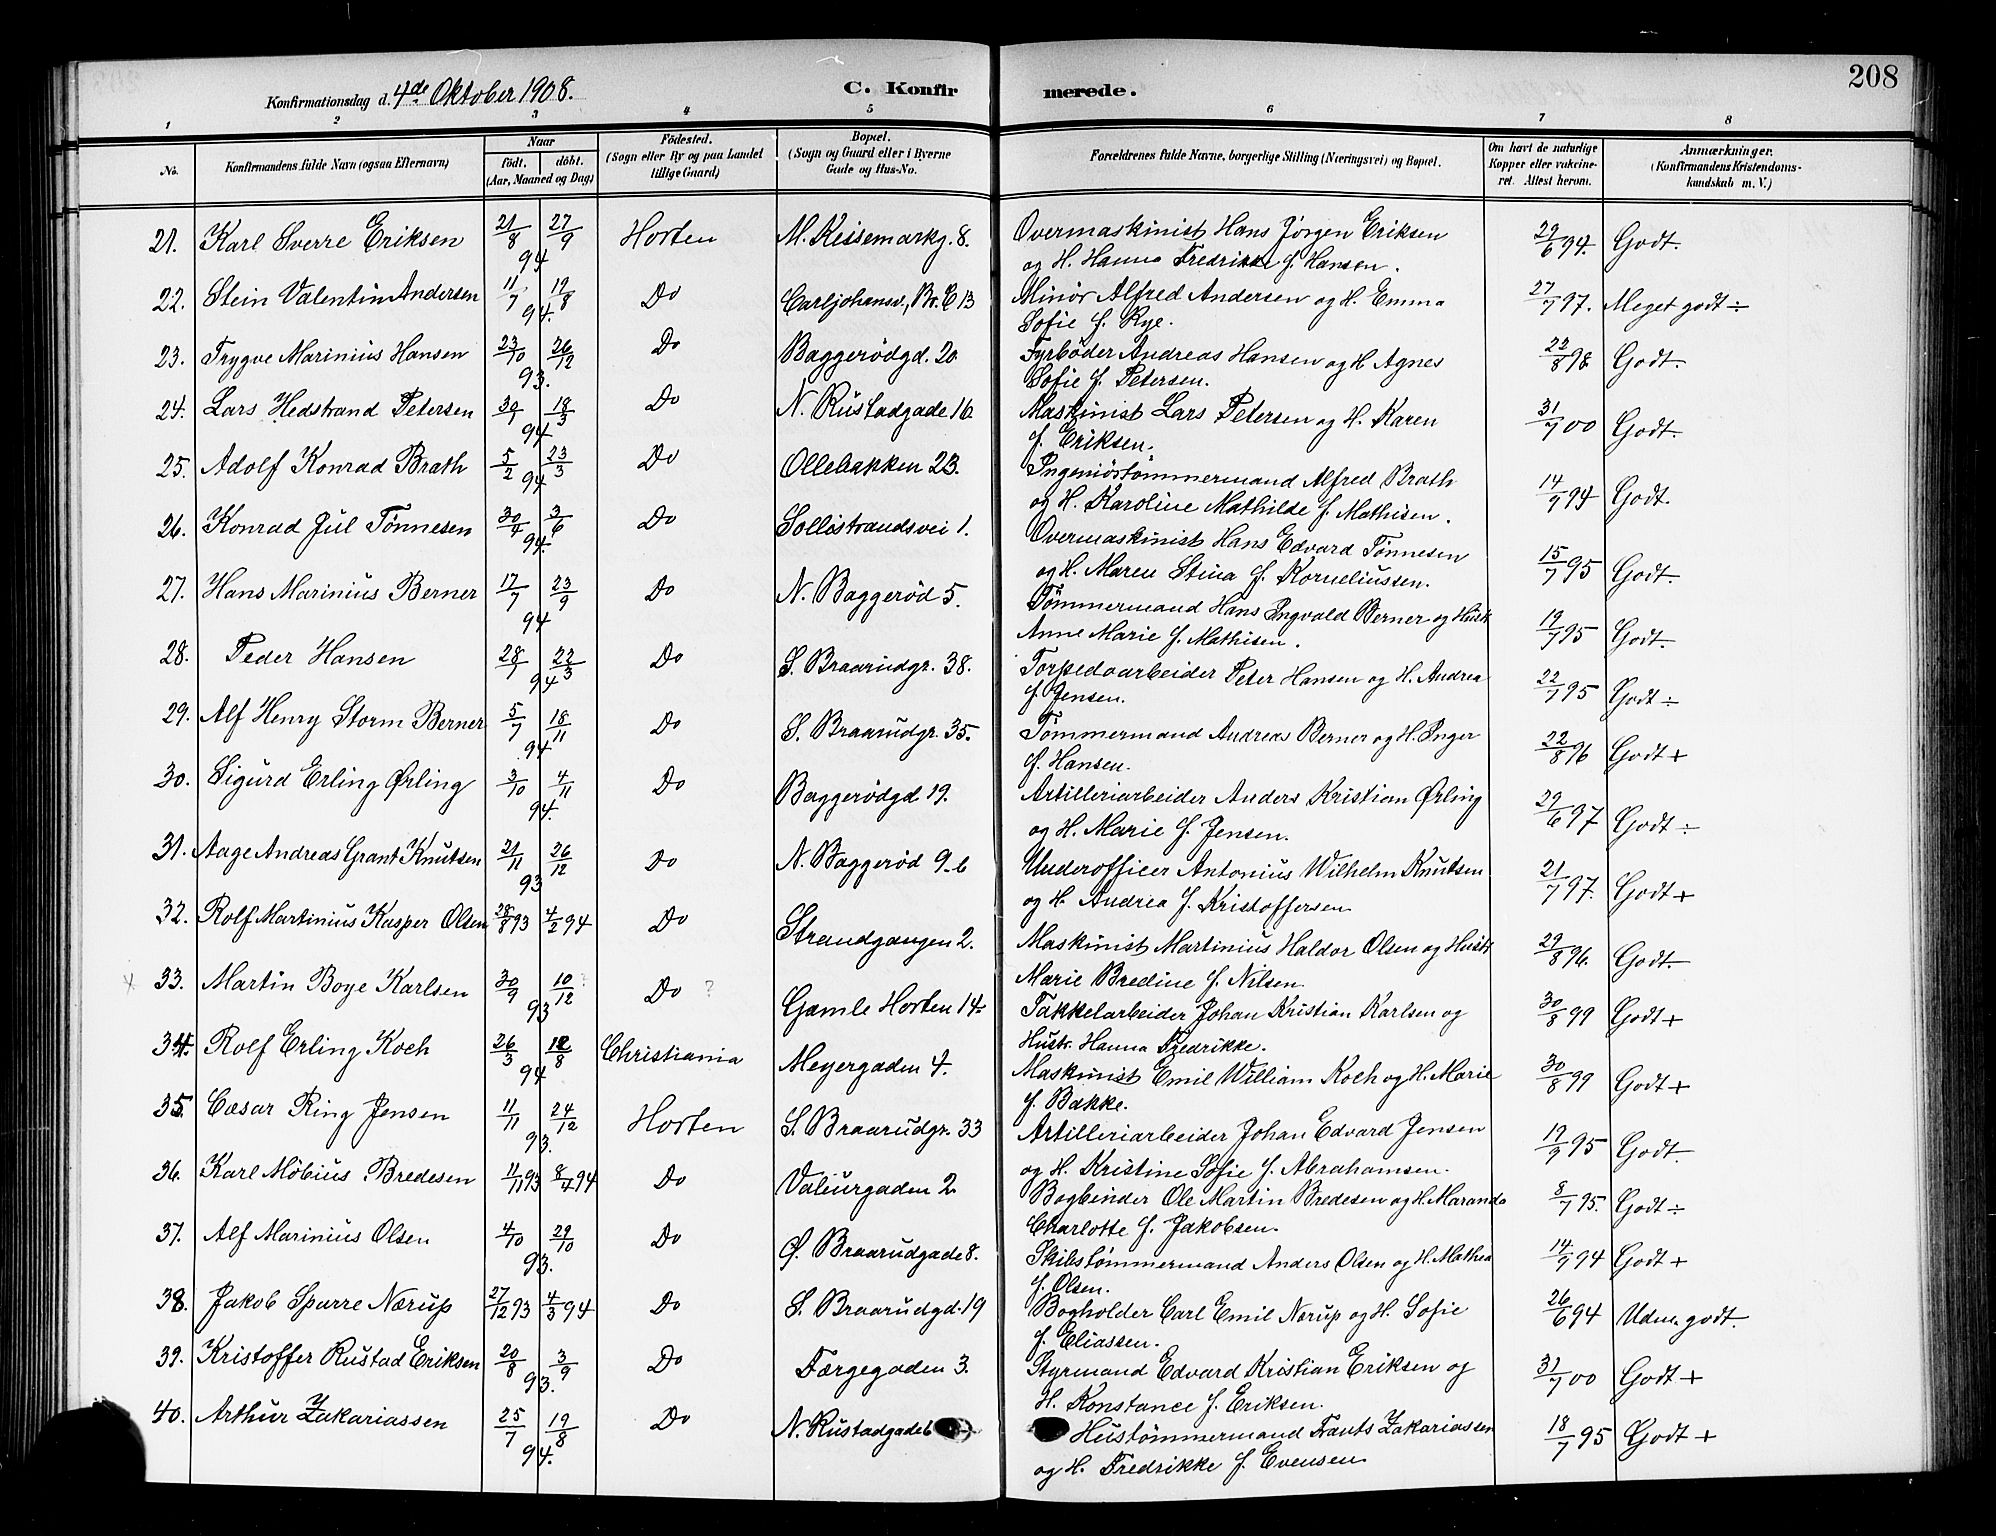 Konfirmationsdag d. 4de Oktober 1908.
C. Konfirmerede.
208
1 2 3 4 5 6 7 8
No. Konfirmandens fulde Navn (ogsaa Efternavn) Naar født. døbt. (Aar, Maaned og Dag) Fødested. (Sogn eller By og paa Landet tillige Gaard) Bopæl. (Sogn og Gaard eller i Byerne Gade og Hus-No. Forældrenes fulde Navne, borgerlige Stilling (Næringsvei) og Bopæl. Om havt de naturlige Kopper eller vakcineret. Attest herom. Anmærkninger. (Konfirmandens Kristendomskundskab m. V.)
21. Karl Sverre Eriksen 21/8 27/9 94 Horten M. Keisemarkg. 8. Overmaskinist Hans Jørgen Eriksen 29/6 94. Godt.
og H. Hanna Fredrikke f. Hansen.
22. Stein Valentin Andersen 11/7 19/8 94. Do Carljohansv, Br. C 13 Minør Alfred Andersen og H. Emma 27/7 97. Meget godt ÷
Sofie f. Rye.
23. Trygve Marinius Hansen 23/10 26/12 93. Do Baggerødgd. 20. Fyrbøder Andreas Hansen og H. Agnes 22/8 98. Godt.
Sofie f. Petersen.
24. Lars Hedstrand Petersen 30/1 18/3 94 Do N. Rustadgade 16 Maskinist Lars Petersen og H. Karen 31/7 00 Godt.
f. Eriksen.
25. Adolf Konrad Brath 5/2 23/3 94 Do Ollebakken 23. Ingeniörtömmermand Alfred Brath 14/9 94 Godt.
og H. Karoline Mathilde f. Mathisen.
26. Konrad Jul Tønnesen 30/4 3/6 94. Do Sollistrandsvei 1. Overmaskinist Hans Edvard Tønnesen 15/7 95 Godt.
og H. Maren Stina f. Korneliussen.
27. Hans Marinius Berner 17/7 23/9 94 Do N. Baggerød 5. Tømmermand Hans Ingvald Berner og Hustr 19/7 95 Godt.
Anne Marie f. Mathisen.
28. Peder Hansen 28/1 22/3 94 Do S. Braarudgr. 38. Torpedoarbeider Peter Hansen og H. Andrea 22/7 95 Godt ÷
f. Jensen.
29. Alf Henry Storm Berner 5/7 18/11 94 Do S. Braarudgr. 35. Tømmermand Andreas Berner og H. Inger 22/8 96 Godt +
f. Hansen.
30. Sigurd Erling Ørling 3/10 4/11 94. Do Baggerødgd 19. Artilleriarbeider Anders Kristian Ørling 29/6 97 Godt ÷
og H. Marie f. Jensen.
31. Aage Andreas Grant Knutsen 21/11 26/12 93 Do N. Baggerød 9. b Underofficer Antonius Wilhelm Knutsen 21/7 97. Godt +
og H. Andrea f. Kristoffersen
32. Rolf Martinius Kasper Olsen 28/8 93 4/2 94 Do Strandgangen 2. Maskinist Martinius Haldor Olsen og Hustr 29/8 96. Godt.
Marie Bredine f. Nilsen.
× 33. Martin Boye Karlsen 30/9 10/12 ? 93 Do ? Gamle Horten 14. Takkelarbeider Johan Kristian Karlsen og 30/8 99 Godt +
Hustr. Hanna Fredrikke.
34. Rolf Erling Koch 26/3 12/8 94 Christiania Meyergaden 4. Maskinist Emil William Koch og H. Marie 30/8 99 Godt +
f. Bakke.
35. Cæsar Ring Jensen 11/11 24/12 93. Horten S. Braarudgr. 33 Artilleriarbeider Johan Edvard Jensen 19/9 95 Godt.
og H. Kristine Sofie f. Abrahamsen.
36. Karl Möbius Bredesen 11/11 93 8/4 94 Do Valeurgaden 2. Bogbinder Ole Martin Bredesen og H. Maranda 8/7 95. Godt ÷
Charlotte f. Jakobsen.
37. Alf Marinius Olsen 4/10 29/10 93. Do Ø. Braarudgade 8. Skibstømmermand Anders Olsen og H. Mathea 14/9 94 Godt +
f. Olsen.
38. Jakob Sparre Nærup 27/12 93 4/3 94 Do S. Braarudgd. 19 Bogholder Carl Emil Nærup og H. Sofie 26/6 94 Udm. godt.
f. Eliassen.
39. Kristoffer Rustad Eriksen 20/8 3/9 93. Do Færgegaden 3. Styrmand Edvard Kristian Eriksen og 31/7 00 Godt +
H. Konstance f. Eriksen.
40. Arthur Zakariassen 25/7 19/8 94. Do N. Rustadgade 6 Hustømmermand Frants Zakariassen 18/7 95 Godt +
og H. Fredrikke f. Evensen